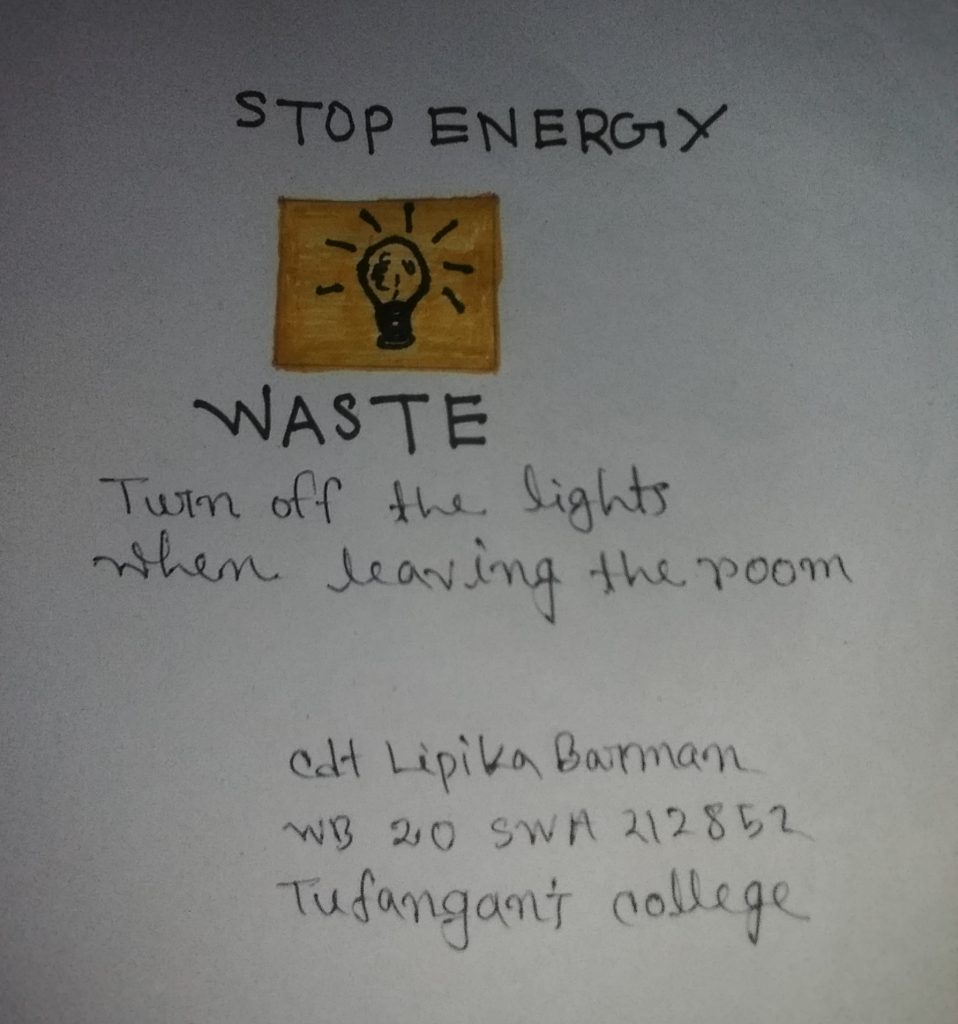 STOP ENERGY
WASTE
Turn off the lights
when leaving the room
cdt Lipika Barman
WB 20 SWA 212852
Tufanganj college